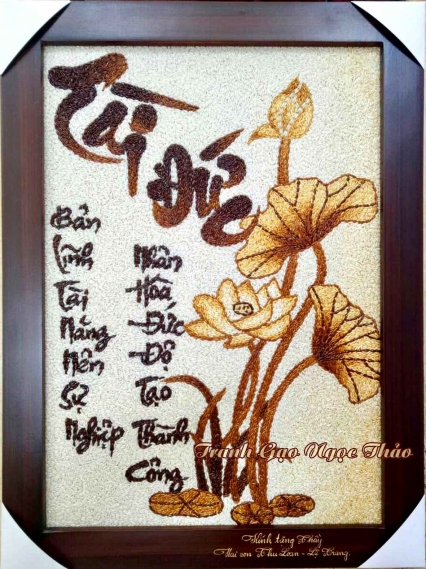 Tài
Đức
Bản
Lĩnh
Tài
Năng
Nên
Sự
Nghiệp
Nhân
Hoà
Đức
Độ
Tạo
Thành
Công
Tranh Gạo Ngọc Thảo
Kính tặng Thầy
Hai con Thu Loan - Lệ Trung.